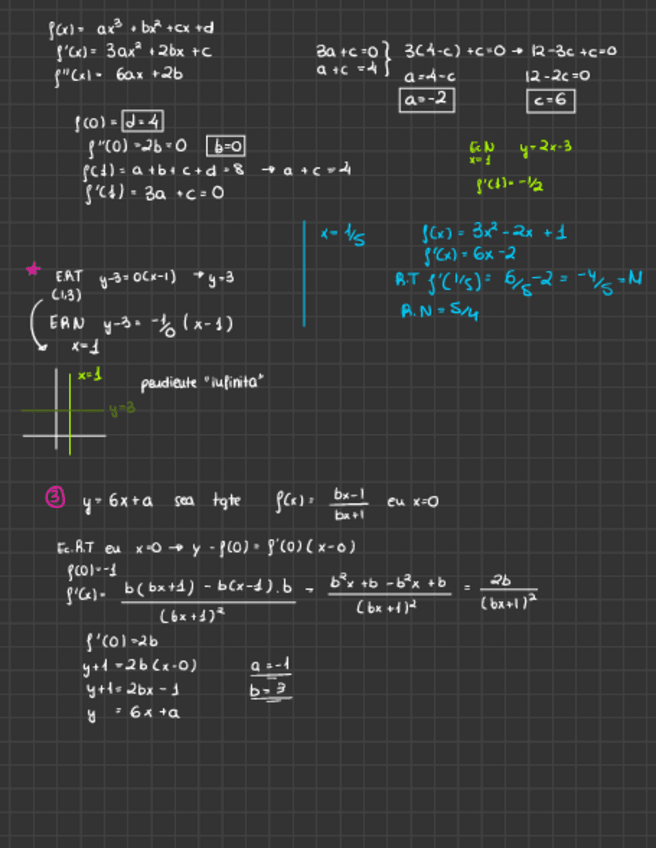 f(x) = ax³ + bx² + cx + d
f'(x) = 3ax² + 2bx + c
f''(x) = 6ax + 2b
3a + c = 0 } 3(4-c) + c = 0 → 12 - 3c + c = 0
a + c = 4
a = 4 - c
12 - 2c = 0
a = -2
c = 6
f(0) = d = 4
f''(0) = 2b = 0 b = 0
f(1) = a + b + c + d = 8 → a + c = 4
f'(1) = 3a + c = 0
Ec N y = 2x - 3
x = 1
f'(1) = -1/2
x = 1/5
f(x) = 3x² - 2x + 1
f'(x) = 6x - 2
R.T f'(1/5) = 6/5 - 2 = -4/5 = M
R.N = 5/4
E.R.T y - 3 = 0(x-1) → y = 3
(1,3)
E R N y - 3 = -1/0 (x-1)
x = 1
x = 1
pendiente "infinita"
y = 3
③ y = 6x + a sea tgte f(x) = bx-1/bx+1 eu x=0
Ec. R.T eu x=0 → y - f(0) = f'(0) (x-0)
f(0) = -1
f'(x) = b(bx+1) - b(x-1).b/(bx+1)² = b²x + b - b²x + b/(bx+1)² = 2b/(bx+1)²
f'(0) = 2b
y + 1 = 2b(x-0) a = -1
y + 1 = 2bx - 1 b = 3
y = 6x + a